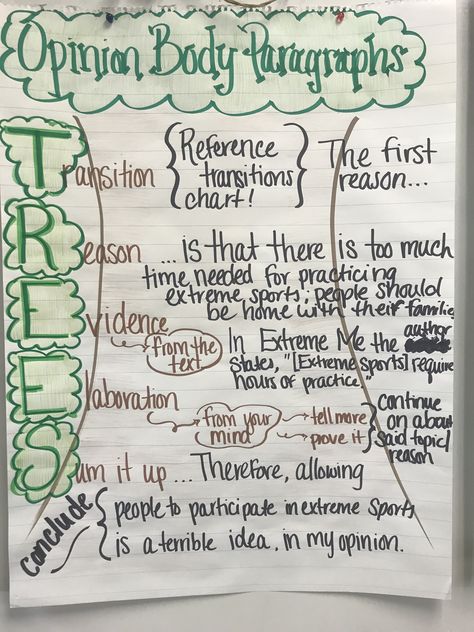 Opinion Body Paragraphs
Transition {Reference transitions chart!} The first reason...
Reason ...is that there is too much
time needed for practicing
extreme sports; people should
be home with their families
Evidence In Extreme Me the author
from the text states, "[Extreme sports] require
hours of practice."
Elaboration
from your mind → tell more
→ prove it
continue
on about
said topic/
reason
Sum it up ...Therefore, allowing
conclude {people to participate in extreme sports
is a terrible idea, in my opinion.